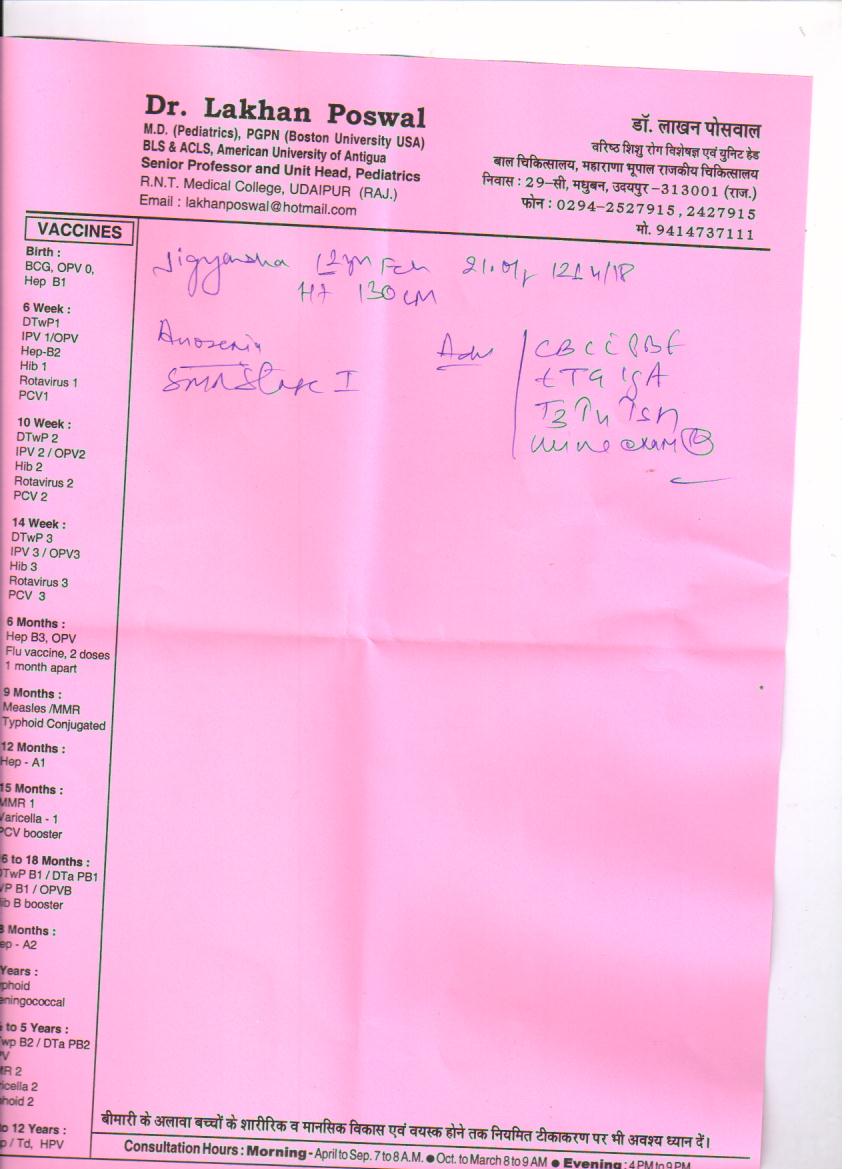 Dr. Lakhan Poswal
M.D. (Pediatrics), PGPN (Boston University USA)
BLS & ACLS, American University of Antigua
Senior Professor and Unit Head, Pediatrics
R.N.T. Medical College, UDAIPUR (RAJ.)
Email : lakhanposwal@hotmail.com
डॉ. लाखन पोसवाल
वरिष्ठ शिशु रोग विशेषज्ञ एवं युनिट हेड
बाल चिकित्सालय, महाराणा भूपाल राजकीय चिकित्सालय
निवास : 29-सी, मधुबन, उदयपुर-313001 (राज.)
फोन : 0294-2527915, 2427915
मो. 9414737111
VACCINES
Birth :
BCG, OPV 0,
Hep B1
6 Week :
DTwP1
IPV 1/OPV
Hep-B2
Hib 1
Rotavirus 1
PCV1
10 Week :
DTwP 2
IPV 2 / OPV2
Hib 2
Rotavirus 2
PCV 2
14 Week :
DTwP 3
IPV 3 / OPV3
Hib 3
Rotavirus 3
PCV 3
6 Months :
Hep B3, OPV
Flu vaccine, 2 doses
1 month apart
9 Months :
Measles /MMR
Typhoid Conjugated
12 Months :
Hep - A1
15 Months :
MMR 1
Varicella - 1
PCV booster
6 to 18 Months :
DTwP B1 / DTa PB1
VP B1 / OPVB
ib B booster
Months :
ep - A2
Years :
phoid
eningococcal
to 5 Years :
wp B2 / DTa PB2
V
MR 2
ricella 2
phoid 2
to 12 Years :
p / Td, HPV
Jigyansha 12yr
HT 130 cm
Anosmia
SMR Stage I
Adv
CBC c PBF
tTG IgA
T3 T4 TSH
urine exam
बीमारी के अलावा बच्चों के शारीरिक व मानसिक विकास एवं वयस्क होने तक नियमित टीकाकरण पर भी अवश्य ध्यान दें।
Consultation Hours : Morning - April to Sep. 7 to 8 A.M. ● Oct. to March 8 to 9 AM ● Evening : 4 PM to 9 PM